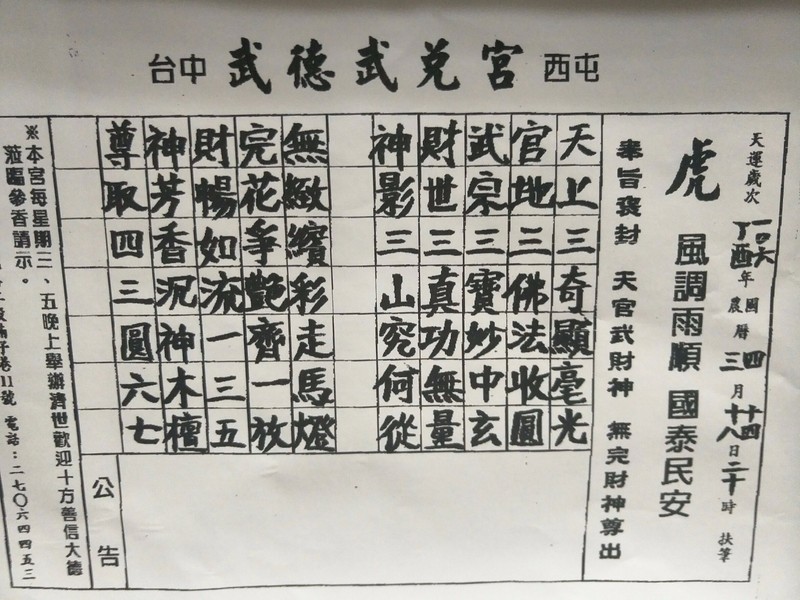 台中 武德武兌宮 西屯
天運歲次 丁酉 一〇六 年 農國曆 三四 月 十八 廿四 日 二十 時 扶筆
虎 風調雨順 國泰民安
奉旨褒封 天官武財神 無完財神尊出
天上三奇顯毫光
官地三佛法收圓
武宗三寶妙中玄
財世三真功無量
神影三山究何從
無緻繽彩走馬燈
完花爭艷齊一放
財暢如流一三五
神芳香沉神木檀
尊取四三圓六七
公告
※本宮每星期二、五晚上舉辦濟世歡迎十方善信大德
蒞臨參香請示。
巷11號 電話：二七〇六四四五三